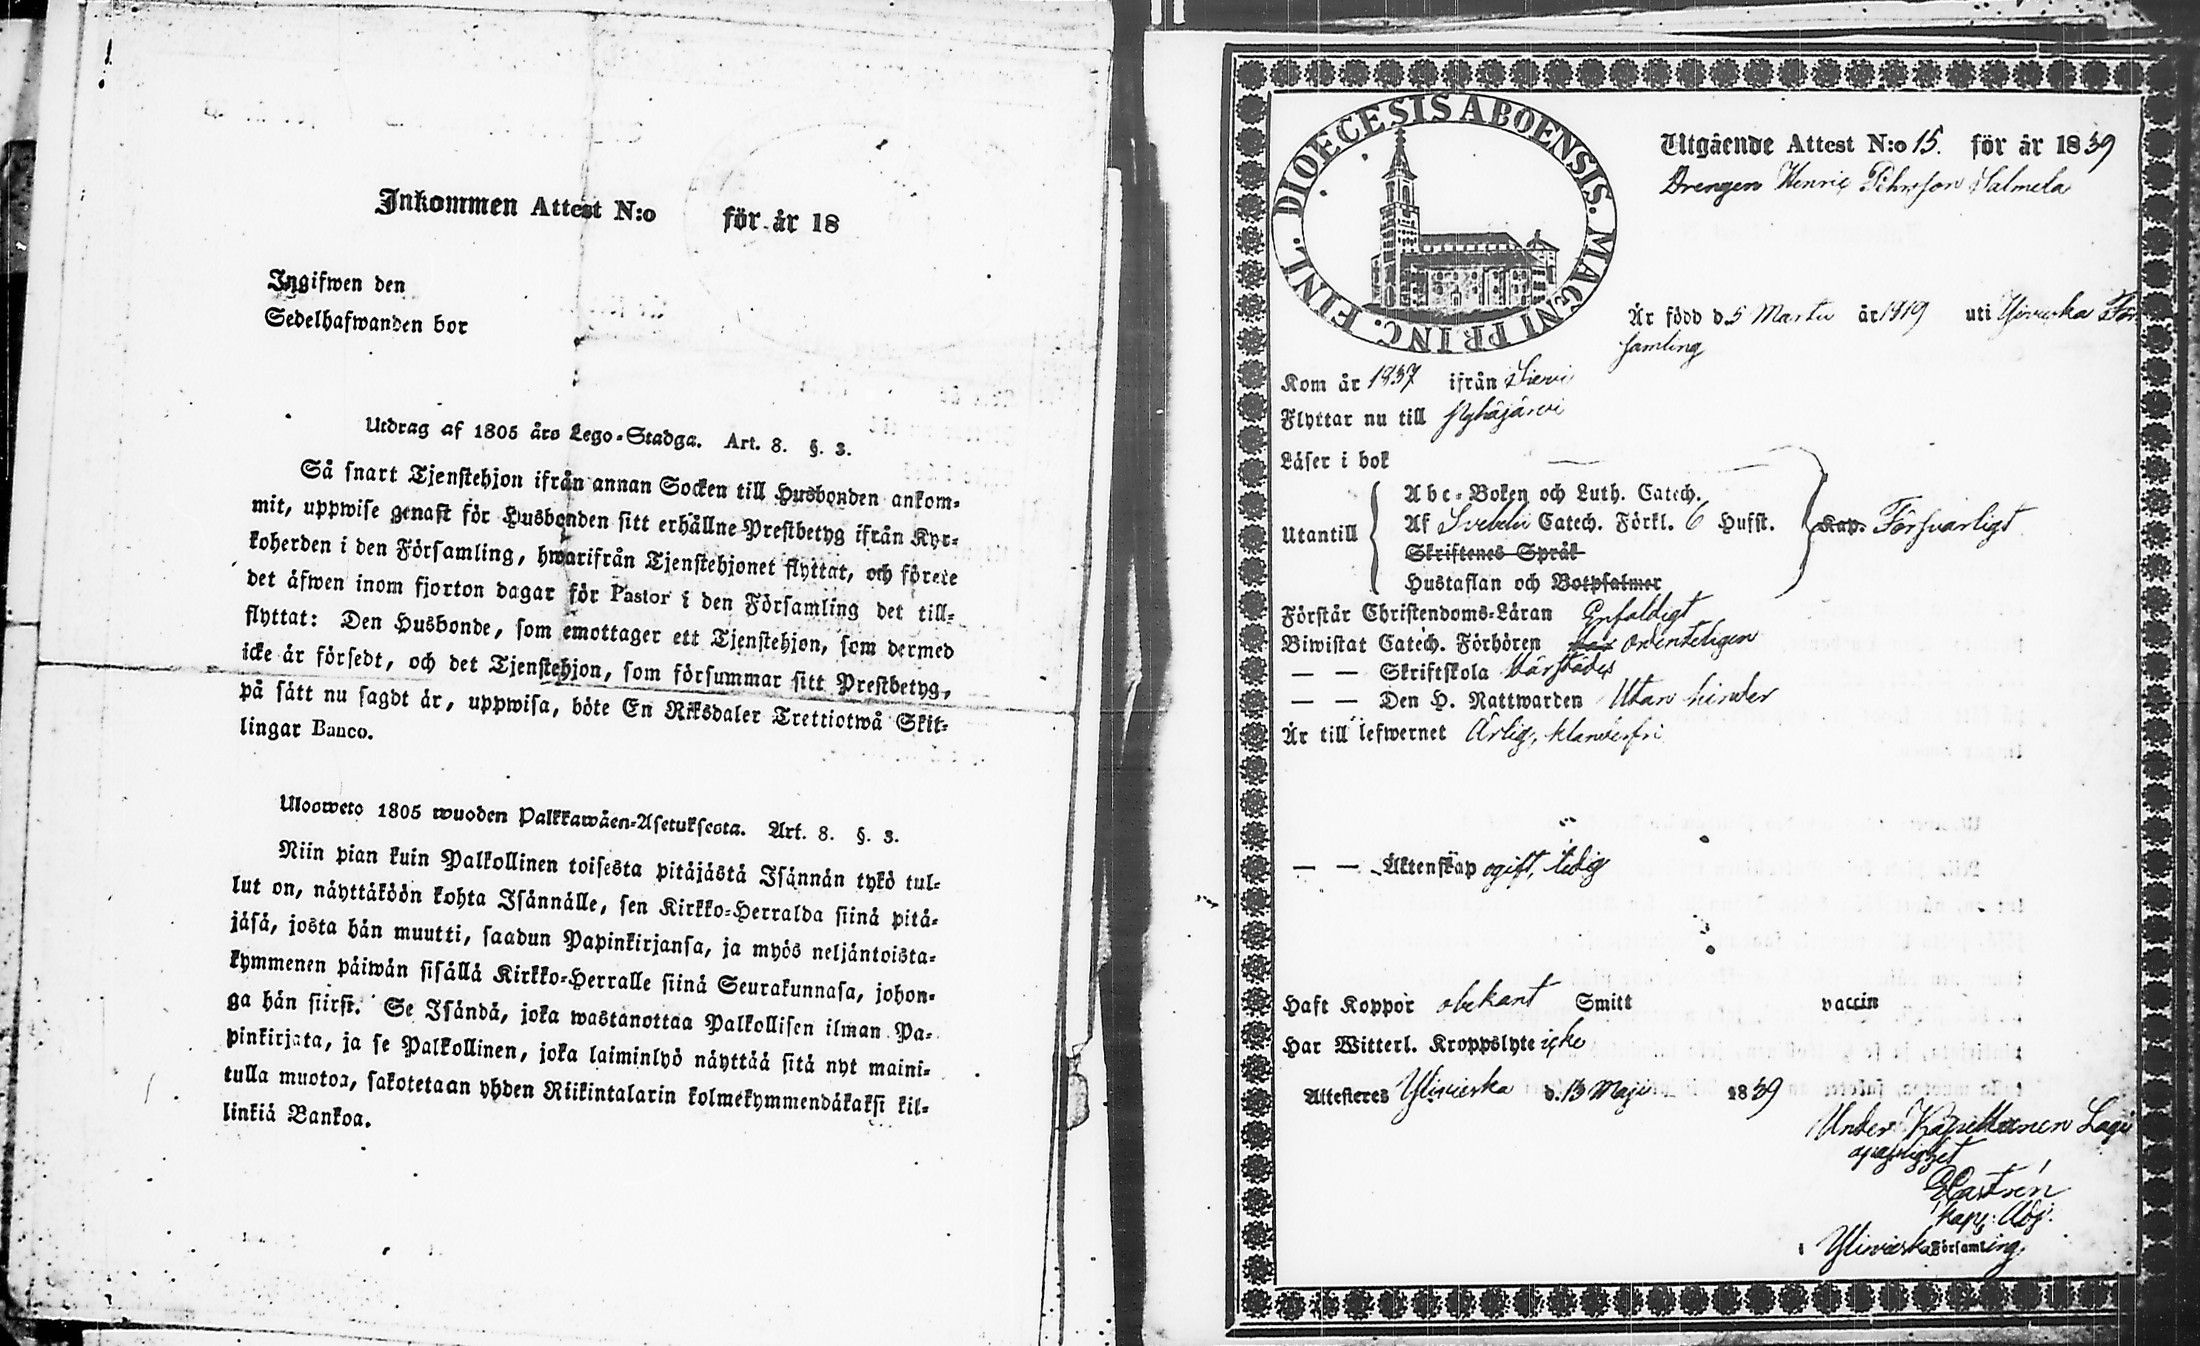 Inkommen Attest N:o för år 18
Ingifwen den
Sedelhafwanden bor
Utdrag af 1805 års Lego-Stadga. Art. 8. §. 3.
Så snart Tjenstehjon ifrån annan Socken till Husbonden ankom-
mit, uppwise genast för Husbonden sitt erhållne Prestbetyg ifrån Kyr-
koherden i den Församling, hwarifrån Tjenstehjonet flyttat, och förete
det äfwen inom fjorton dagar för Pastor i den Församling det till-
flyttat: Den Husbonde, som emottager ett Tjenstehjon, som dermed
icke är försedt, och det Tjenstehjon, som försummar sitt Prestbetyg,
på sätt nu sagdt är, uppwisa, böte En Riksdaler Trettiotwå Skil-
lingar Banco.
Ulosweto 1805 wuoden Palkkawäen-Asetuksesta. Art. 8. §. 3.
Niin pian kuin Palkollinen toisesta pitäjästä Isännän tykö tul-
lut on, näyttäköön kohta Isännälle, sen Kirkko-Herralda siinä pitä-
jäsä, josta hän muutti, saadun Papinkirjansa, ja myös neljäntoista-
kymmenen päiwän sisällä Kirkko-Herralle siinä Seurakunnasa, johon-
ga hän siirst. Se Isändä, joka wastanottaa Palkollisen ilman Pa-
pinkirjata, ja se Palkollinen, joka laiminlyö näyttää sitä nyt maini-
tulla muotoa, sakotetaan yhden Riikintalarin kolmekymmendäkaksi kil-
linkiä Bankoa.
DIOECESIS ABOENSIS. MAGNI PRINC. FINL.
Utgående Attest N:o 15. för år 1839
Drengen Henric Pehrsson Salmela
Är född d. 5 Martii år 1819 uti Ylivieska För
samling
Kom år 1837 ifrån Sievi
Flyttar nu till Pyhäjärvi
Läser i bok
Utantill
Abc-Boken och Luth. Catech.
Af Svebelii Catech. Förkl. 6 Hufst.
Skriftenes Språk
Hustaflan och Botpsalmer
Kap. Försvarligt
Förstår Christendoms-Läran Enfaldigt
Biwistat Catech. Förhören ordenteligen
— — Skriftskola bärstädes
— — Den H. Nattwarden Utan hinder
Är till lefwernet Ärlig, klanderfri
— — Äktenskap ogift, ledig
Haft Koppor obekant Smitt vaccin
Har Witterl. Kroppslyte icke
Attesteres Ylivieska d. 13 Maji 1839
Under Kapellanen Laga
opasslighet
E Castrén
Kapp: Adj:
i Ylivieska Församling.